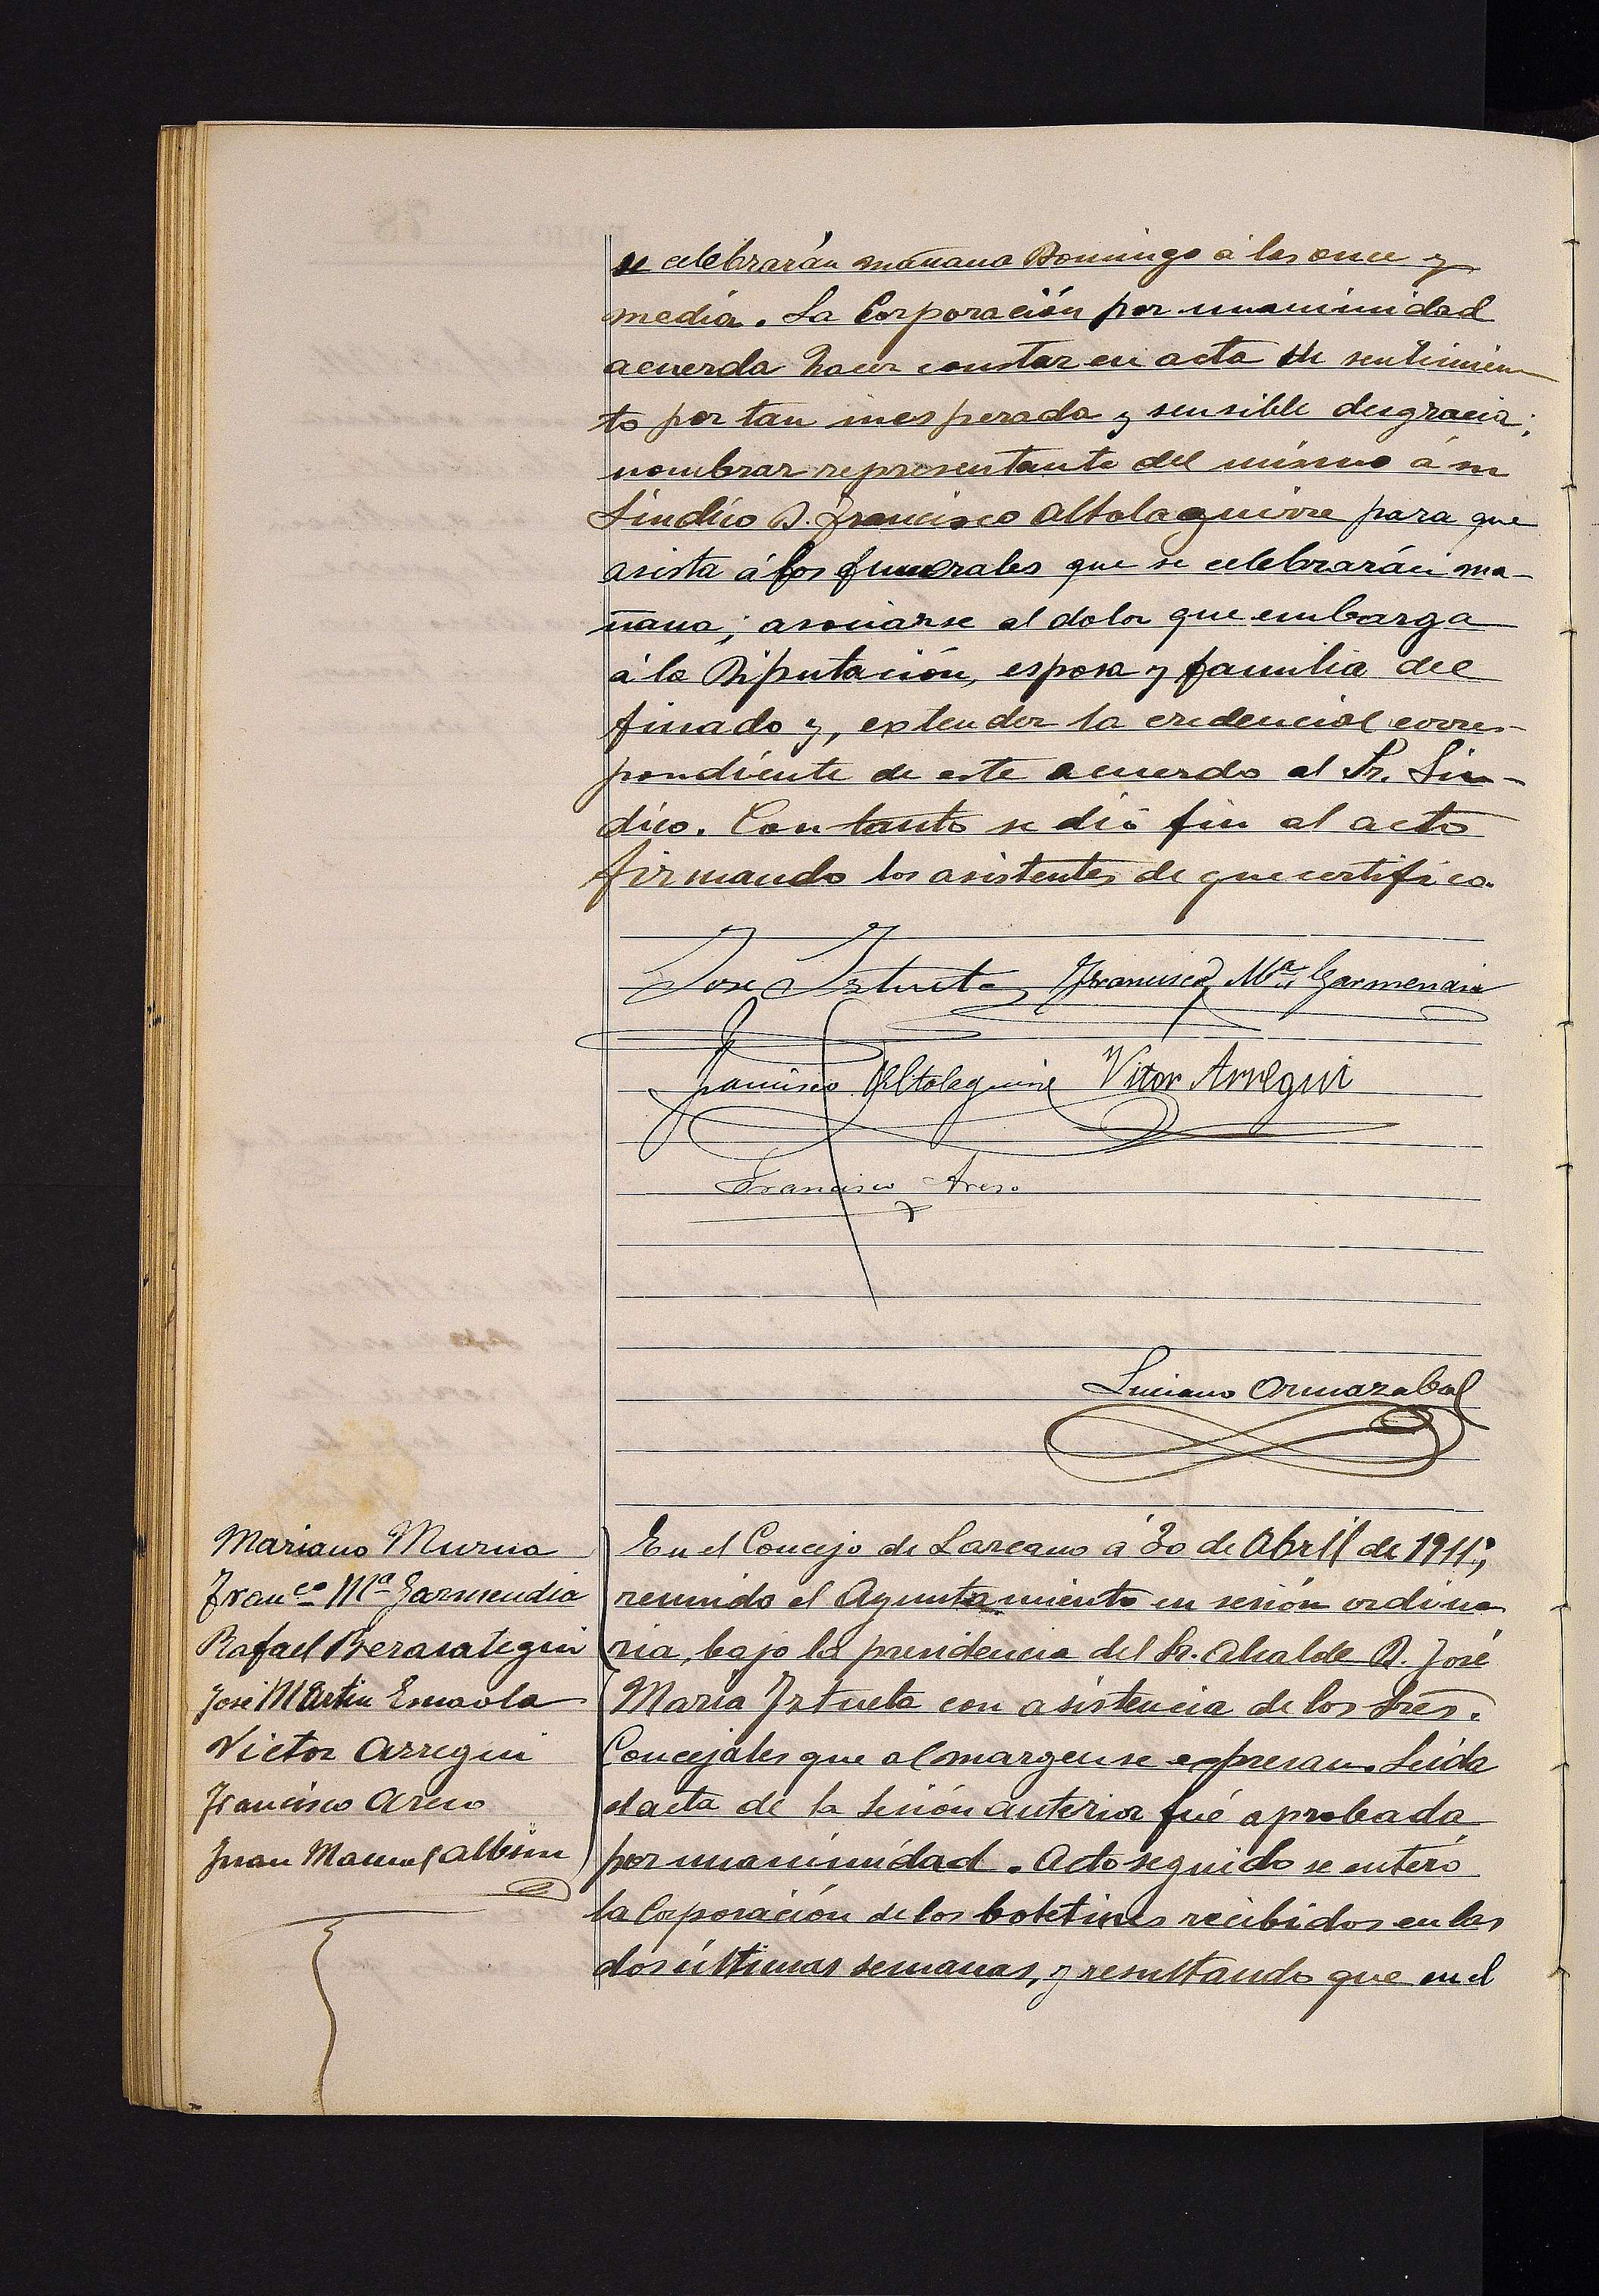 se celebrarán mañana Domingo á las once y
media. La Corporación por unanimidad
acuerda hacer constar en acta su sentimien
to por tan inesperada y sensible desgracia;
nombrar representante del mismo á su
Síndico D. Francisco Altolaguirre para que
asista á los funerales que se celebrarán ma-
ñana; asociarse al dolor que embarga
á la Diputación, esposa y familia del
finado y, extender la credencial corres-
pondiente de este acuerdo al Sr. Sin-
dico. Con tanto se dió fin al acto
firmando los asistentes de que certifico.
Jose Irtueta Francisco Mª Garmendia
Francisco Altolaguirre Vitor Arregui
Francisco Areso
Luciano Ormazabal
Mariano Murua
Franco Mª Garmendia
Rafael Berasategui
José Martin Esnaola
Victor Arregui
Francisco Areso
Juan Manuel Albisu
En el Concejo de Lazcano á 30 de Abril de 1911;
reunido el Ayuntamiento en sesión ordina
ria, bajo la presidencia del Sr. Alcalde D. José
María Irtueta con asistencia de los Sres.
Concejales que al margen se expresan. Leida
el acta de la sesión anterior fué aprobada
por unanimidad. Acto seguido se enteró
la Corporación de los boletines recibidos en las
dos últimas semanas, y resultando que en el